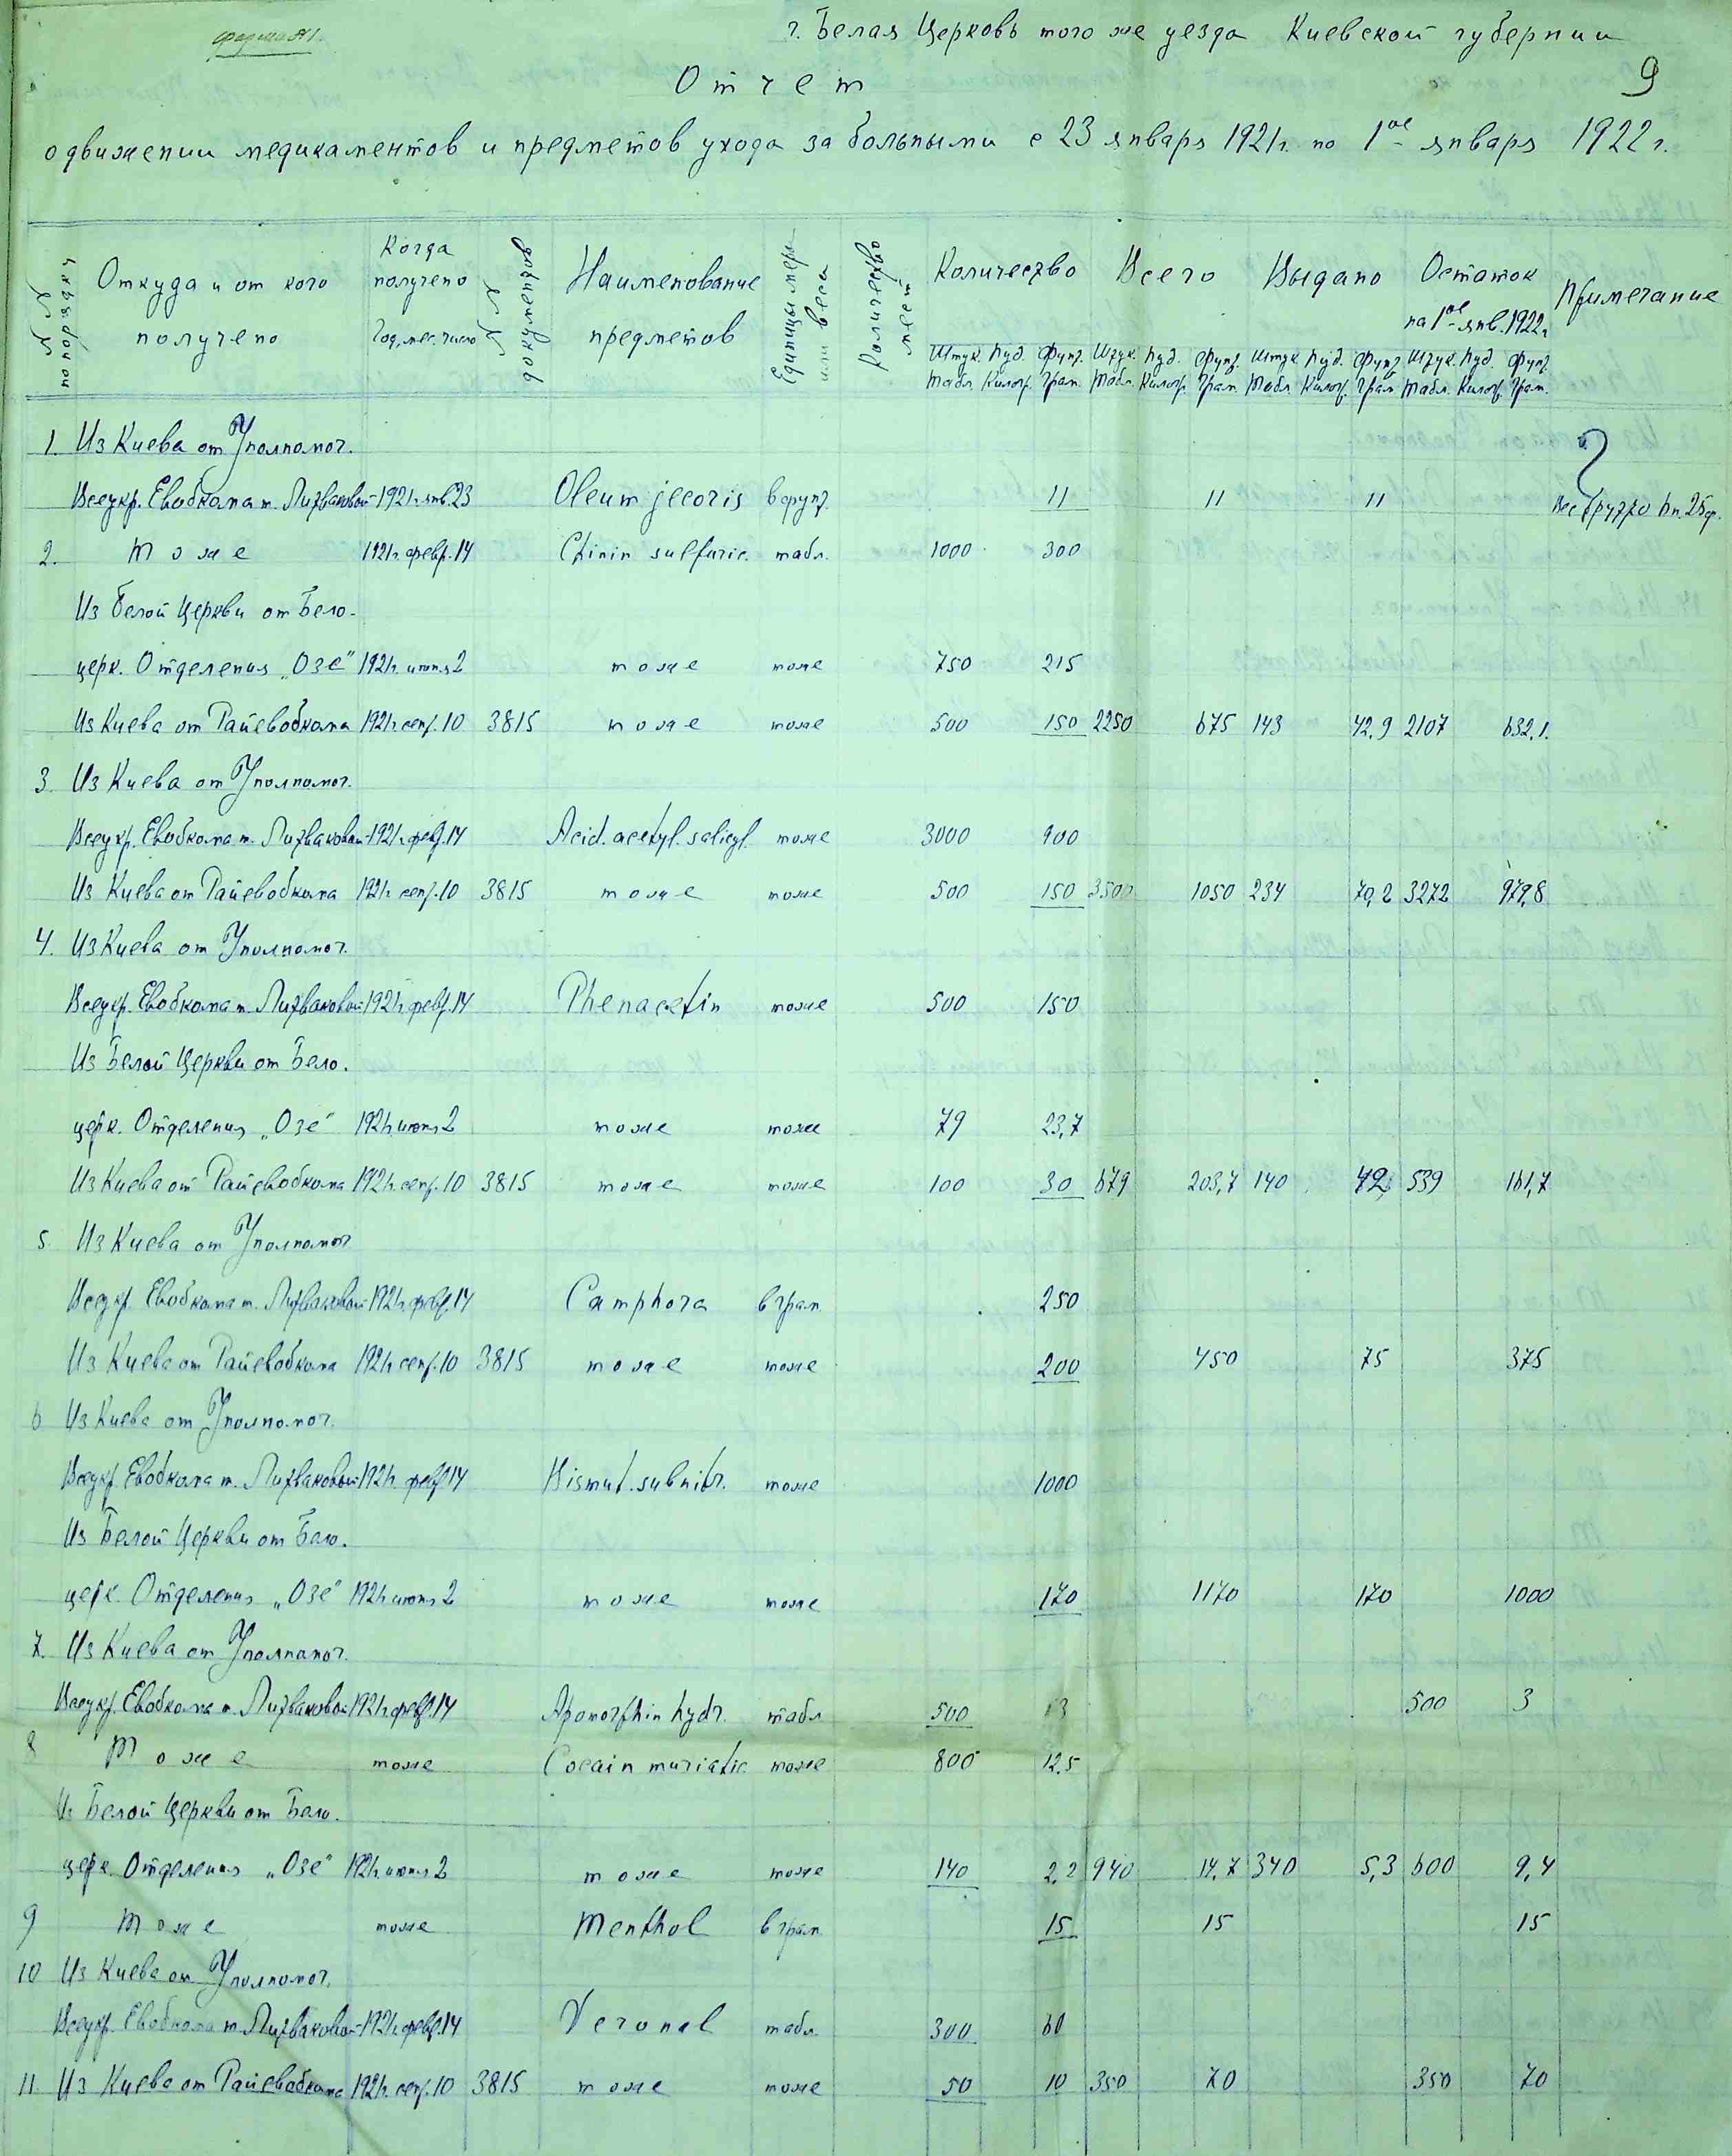 форма №1.
г. Белая Церковь того же уезда Киевской губернии
9
Отчет
о движении медикаментов и предметов ухода за больными с 23 января 1921г. по 1ое января 1922г.
№ № по порядку
Откуда и от кого получено
Когда получено
Год, мес. число
№ № документов
Наименование предметов
Единицы меры или веса
Количество мест
Количество
Всего
Выдано
Остаток на 1ое янв. 1922г.
Примечание
Штук. Пуд. Фунт. Штук. Пуд. Фунт. Штук. Пуд. Фунт. Штук. Пуд. Фунт.
Табл. Килогр. Грам. Табл. Килогр. Грам. Табл. Килогр. Грам. Табл. Килогр. Грам.
1. Из Киева от Уполномоч.
Всеукр. Евобкома т. Литваковой 1921г. янв. 23 Oleum jecoris в фунт. 11 11 11
2. Тоже 1921г. февр. 14 Chinin sulfuric. табл. 1000 300
Из Белой Церкви от Бело-
церк. Отделения „Озе" 1921г. июня 2 тоже тоже 750 215
Из Киева от Райевобкома 1921г. сент. 10 3815 тоже тоже 500 150 2250 675 143 42.9 2107 632.1.
3. Из Киева от Уполномоч.
Всеукр. Евобкома т. Литваковой 1921г. февр. 14 Acid. acetyl. salicyl. тоже 3000 900
Из Киева от Райевобкома 1921г. сент. 10 3815 тоже тоже 500 150 3500 1050 234 70,2 3272 979,8
4. Из Киева от Уполномоч.
Всеукр. Евобкома т. Литваковой 1921г. февр. 14 Phenacetin тоже 500 150
Из Белой Церкви от Бело.
церк. Отделения „Озе" 1921г. июня 2 тоже тоже 79 23,7
Из Киева от Райевобкома 1921г. сент. 10 3815 тоже тоже 100 30 679 203,7 140 42 539 161,7
5. Из Киева от Уполномоч
Всеукр. Евобкома т. Литваковой 1921г. февр. 14 Camphora в грам 250
Из Киева от Райевобкома 1921г. сент. 10 3815 тоже тоже 200 450 75 375
6 Из Киева от Уполномоч.
Всеукр. Евобкома т. Литваковой 1921г. февр 14 Bismut. subnitr. тоже 1000
Из Белой Церкви от Бело.
церк. Отделения „Озе" 1921г. июня 2 тоже тоже 170 1170 170 1000
7. Из Киева от Уполномоч.
Всеукр. Евобкома т. Литваковой 1921г. февр. 14 Apomorphin hydr. табл 500 3 500 3
8 Тоже тоже Cocain muriatic тоже 800 12.5
Из Белой Церкви от Бело.
церк. Отделения „Озе" 1921г. июня 2 тоже тоже 140 2,2 940 14,7 340 5,3 600 9,4
9 Тоже тоже Menthol в грам 15 15 15
10 Из Киева от Уполномоч.
Всеукр. Евобкома т. Литваковой 1921г. февр. 14 Veronal табл 300 60
11. Из Киева от Райевобкома 1921г. сент. 10 3815 тоже тоже 50 10 350 70 350 70